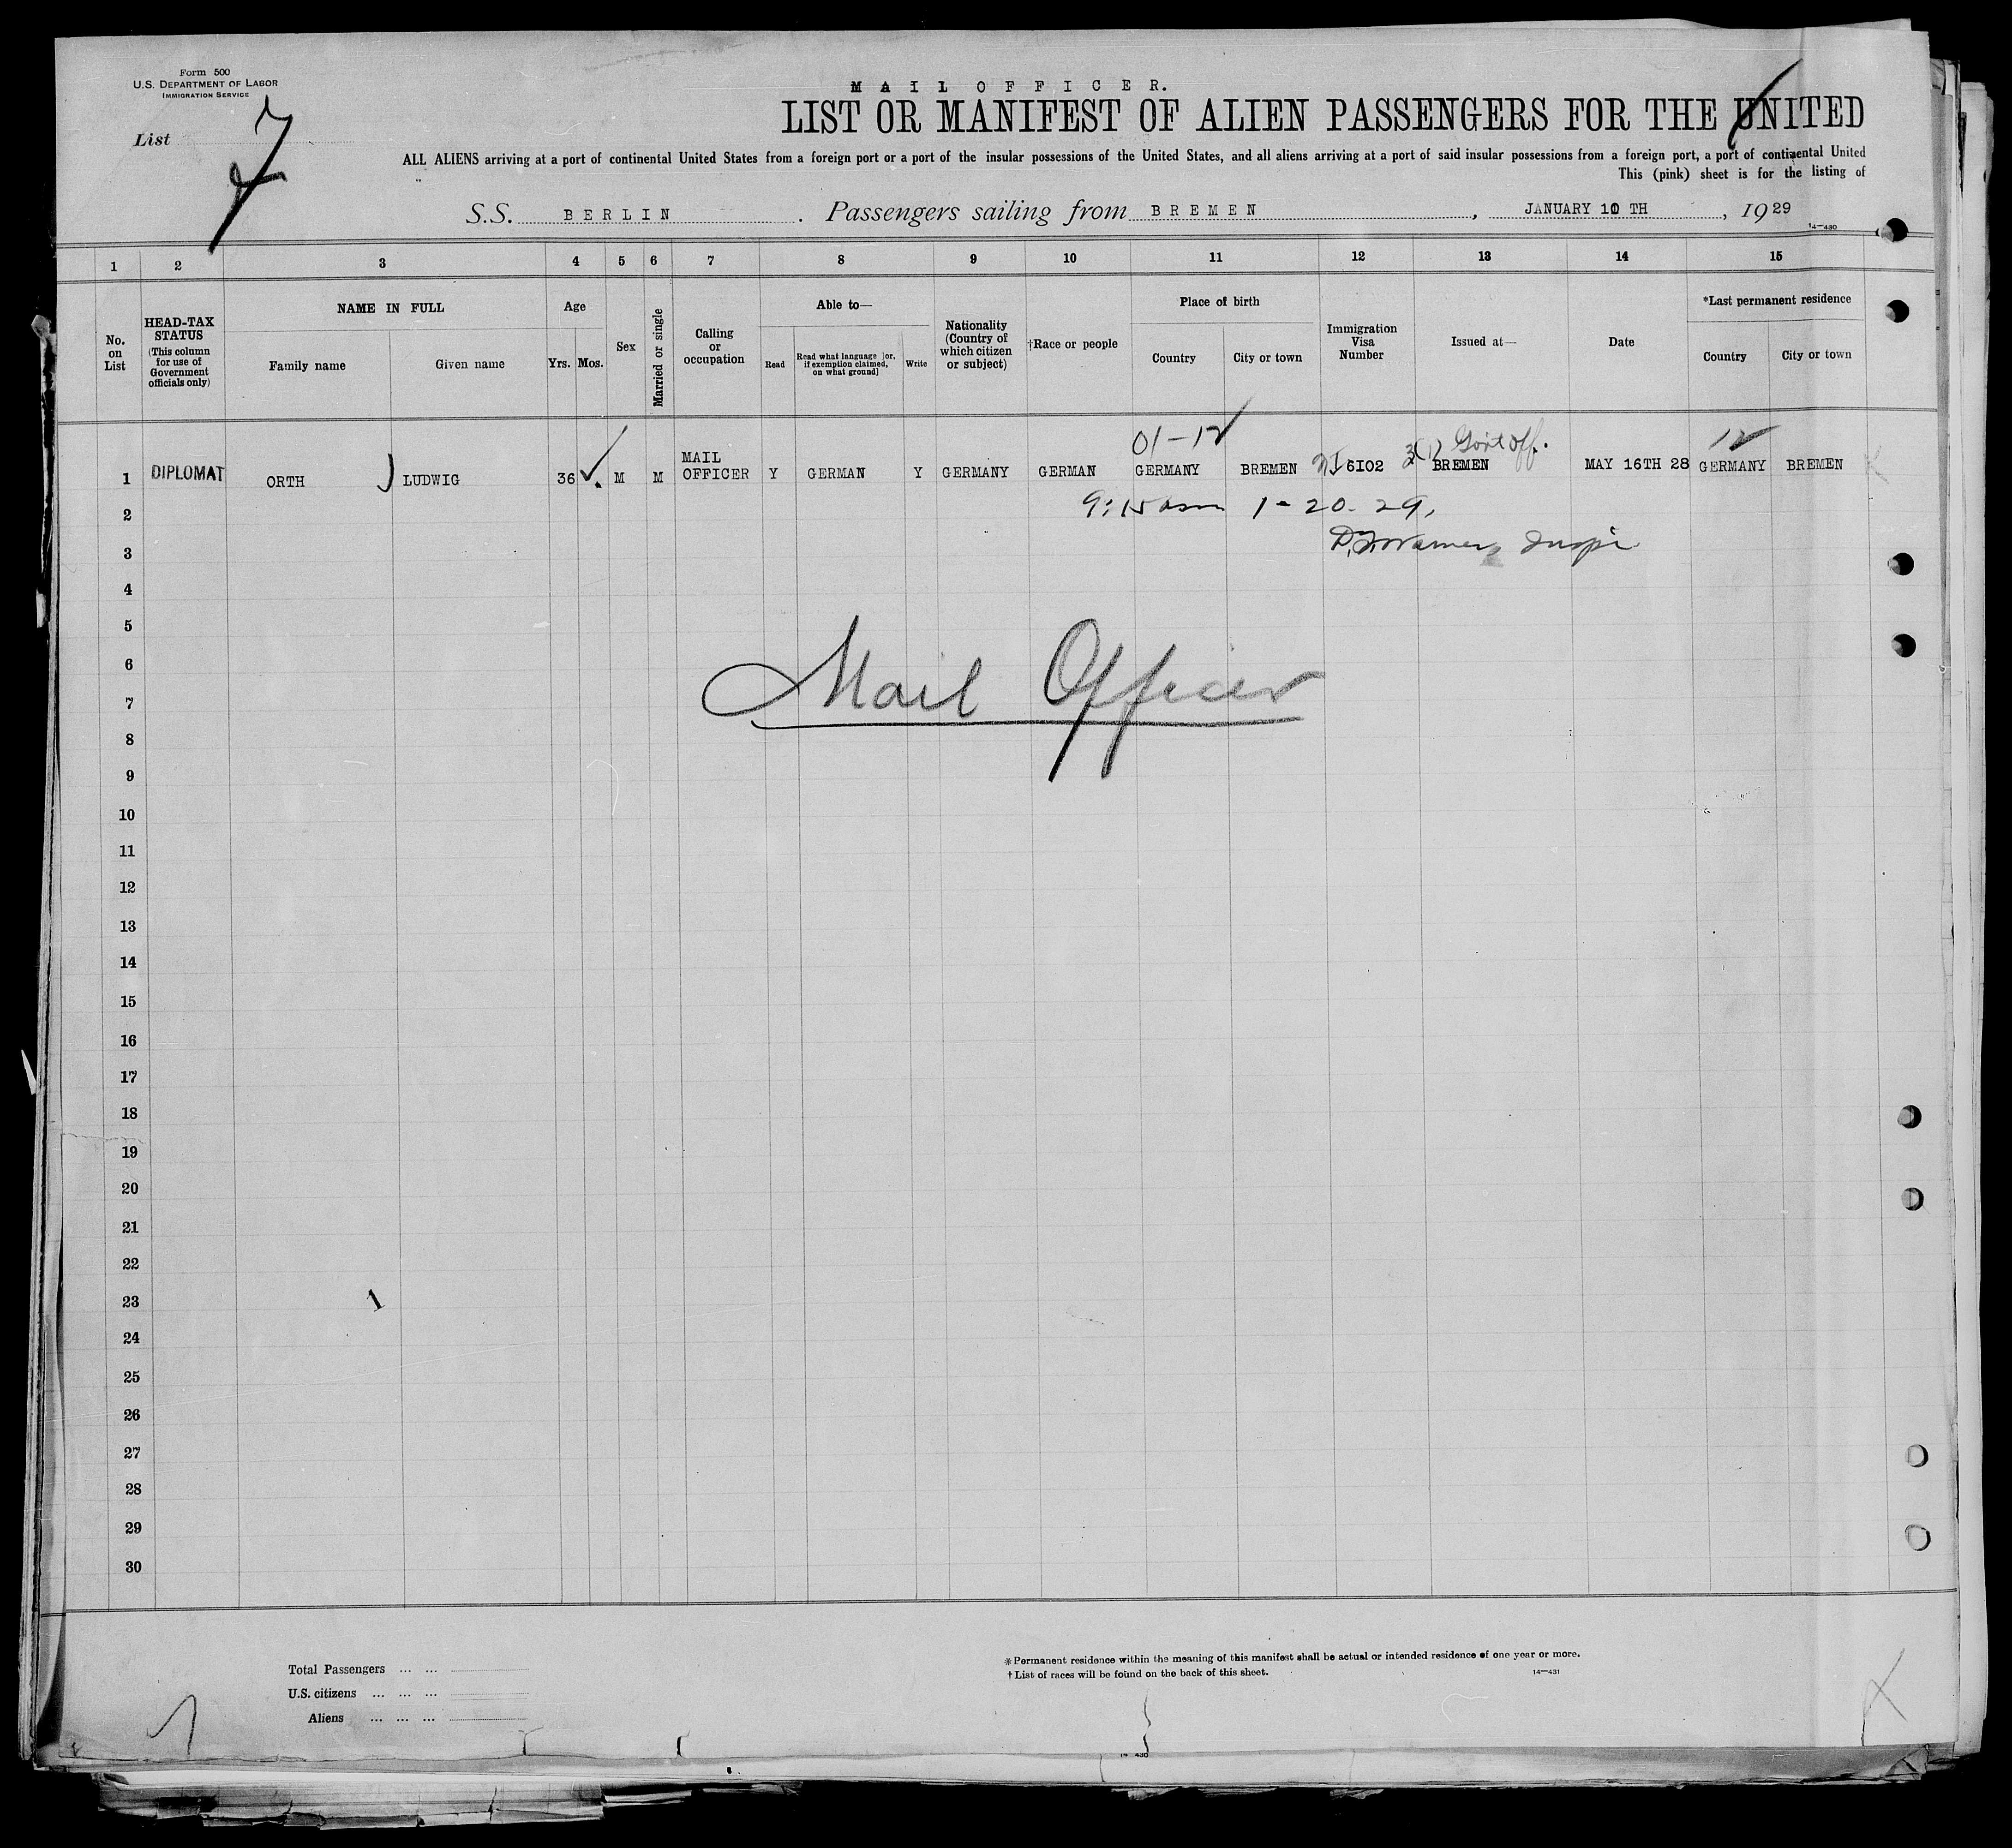 Form 500
U.S. DEPARTMENT OF LABOR
IMMIGRATION SERVICE
List 7
MAIL OFFICER.
LIST OR MANIFEST OF ALIEN PASSENGERS FOR THE UNITED
ALL ALIENS arriving at a port of continental United States from a foreign port or a port of the insular possessions of the United States, and all aliens arriving at a port of said insular possessions from a foreign port, a port of continental United
This (pink) sheet is for the listing of
S.S. BERLIN. Passengers sailing from BREMEN, JANUARY 10 TH, 1929
14—430
1 2 3 4 5 6 7 8 9 10 11 12 13 14 15
No. on List
HEAD-TAX STATUS (This column for use of Government officials only)
NAME IN FULL
Family name
Given name
Age
Yrs. Mos.
Sex
Married or single
Calling or occupation
Able to—
Read
Read what language [or, if exemption claimed, on what ground]
Write
Nationality (Country of which citizen or subject)
†Race or people
Place of birth
Country
City or town
Immigration Visa Number
Issued at—
Date
*Last permanent residence
Country
City or town
01-12 3(1) Govt off. 12
1 DIPLOMAT ORTH LUDWIG 36 M M MAIL OFFICER Y GERMAN Y GERMANY GERMAN GERMANY BREMEN 6102 BREMEN MAY 16TH 28 GERMANY BREMEN
2 9:15 am 1-20-29,
3
4
5
6
7 Mail Officer
8
9
10
11
12
13
14
15
16
17
18
19
20
21
22
23 1
24
25
26
27
28
29
30
Total Passengers ... ...
U.S. citizens ... ... ...
Aliens ... ... ...
*Permanent residence within the meaning of this manifest shall be actual or intended residence of one year or more.
†List of races will be found on the back of this sheet. 14—431
14 430